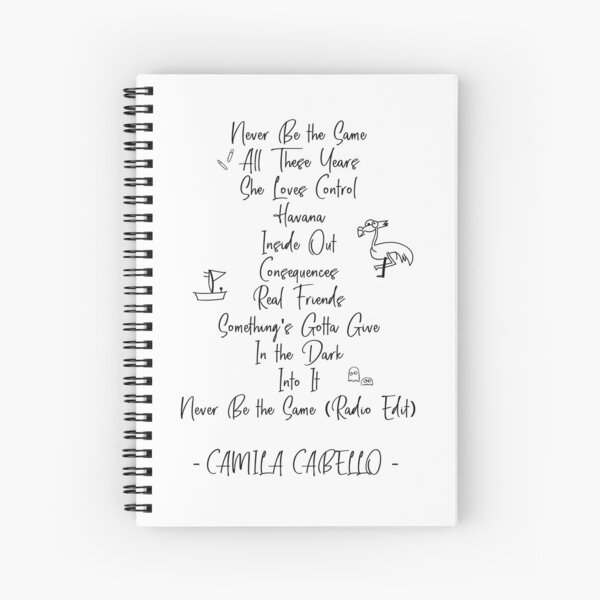 Never Be the Same
All These Years
She Loves Control
Havana
Inside Out
Consequences
Real Friends
Something's Gotta Give
In the Dark
Into It
Never Be the Same (Radio Edit)
- CAMILA CABELLO -